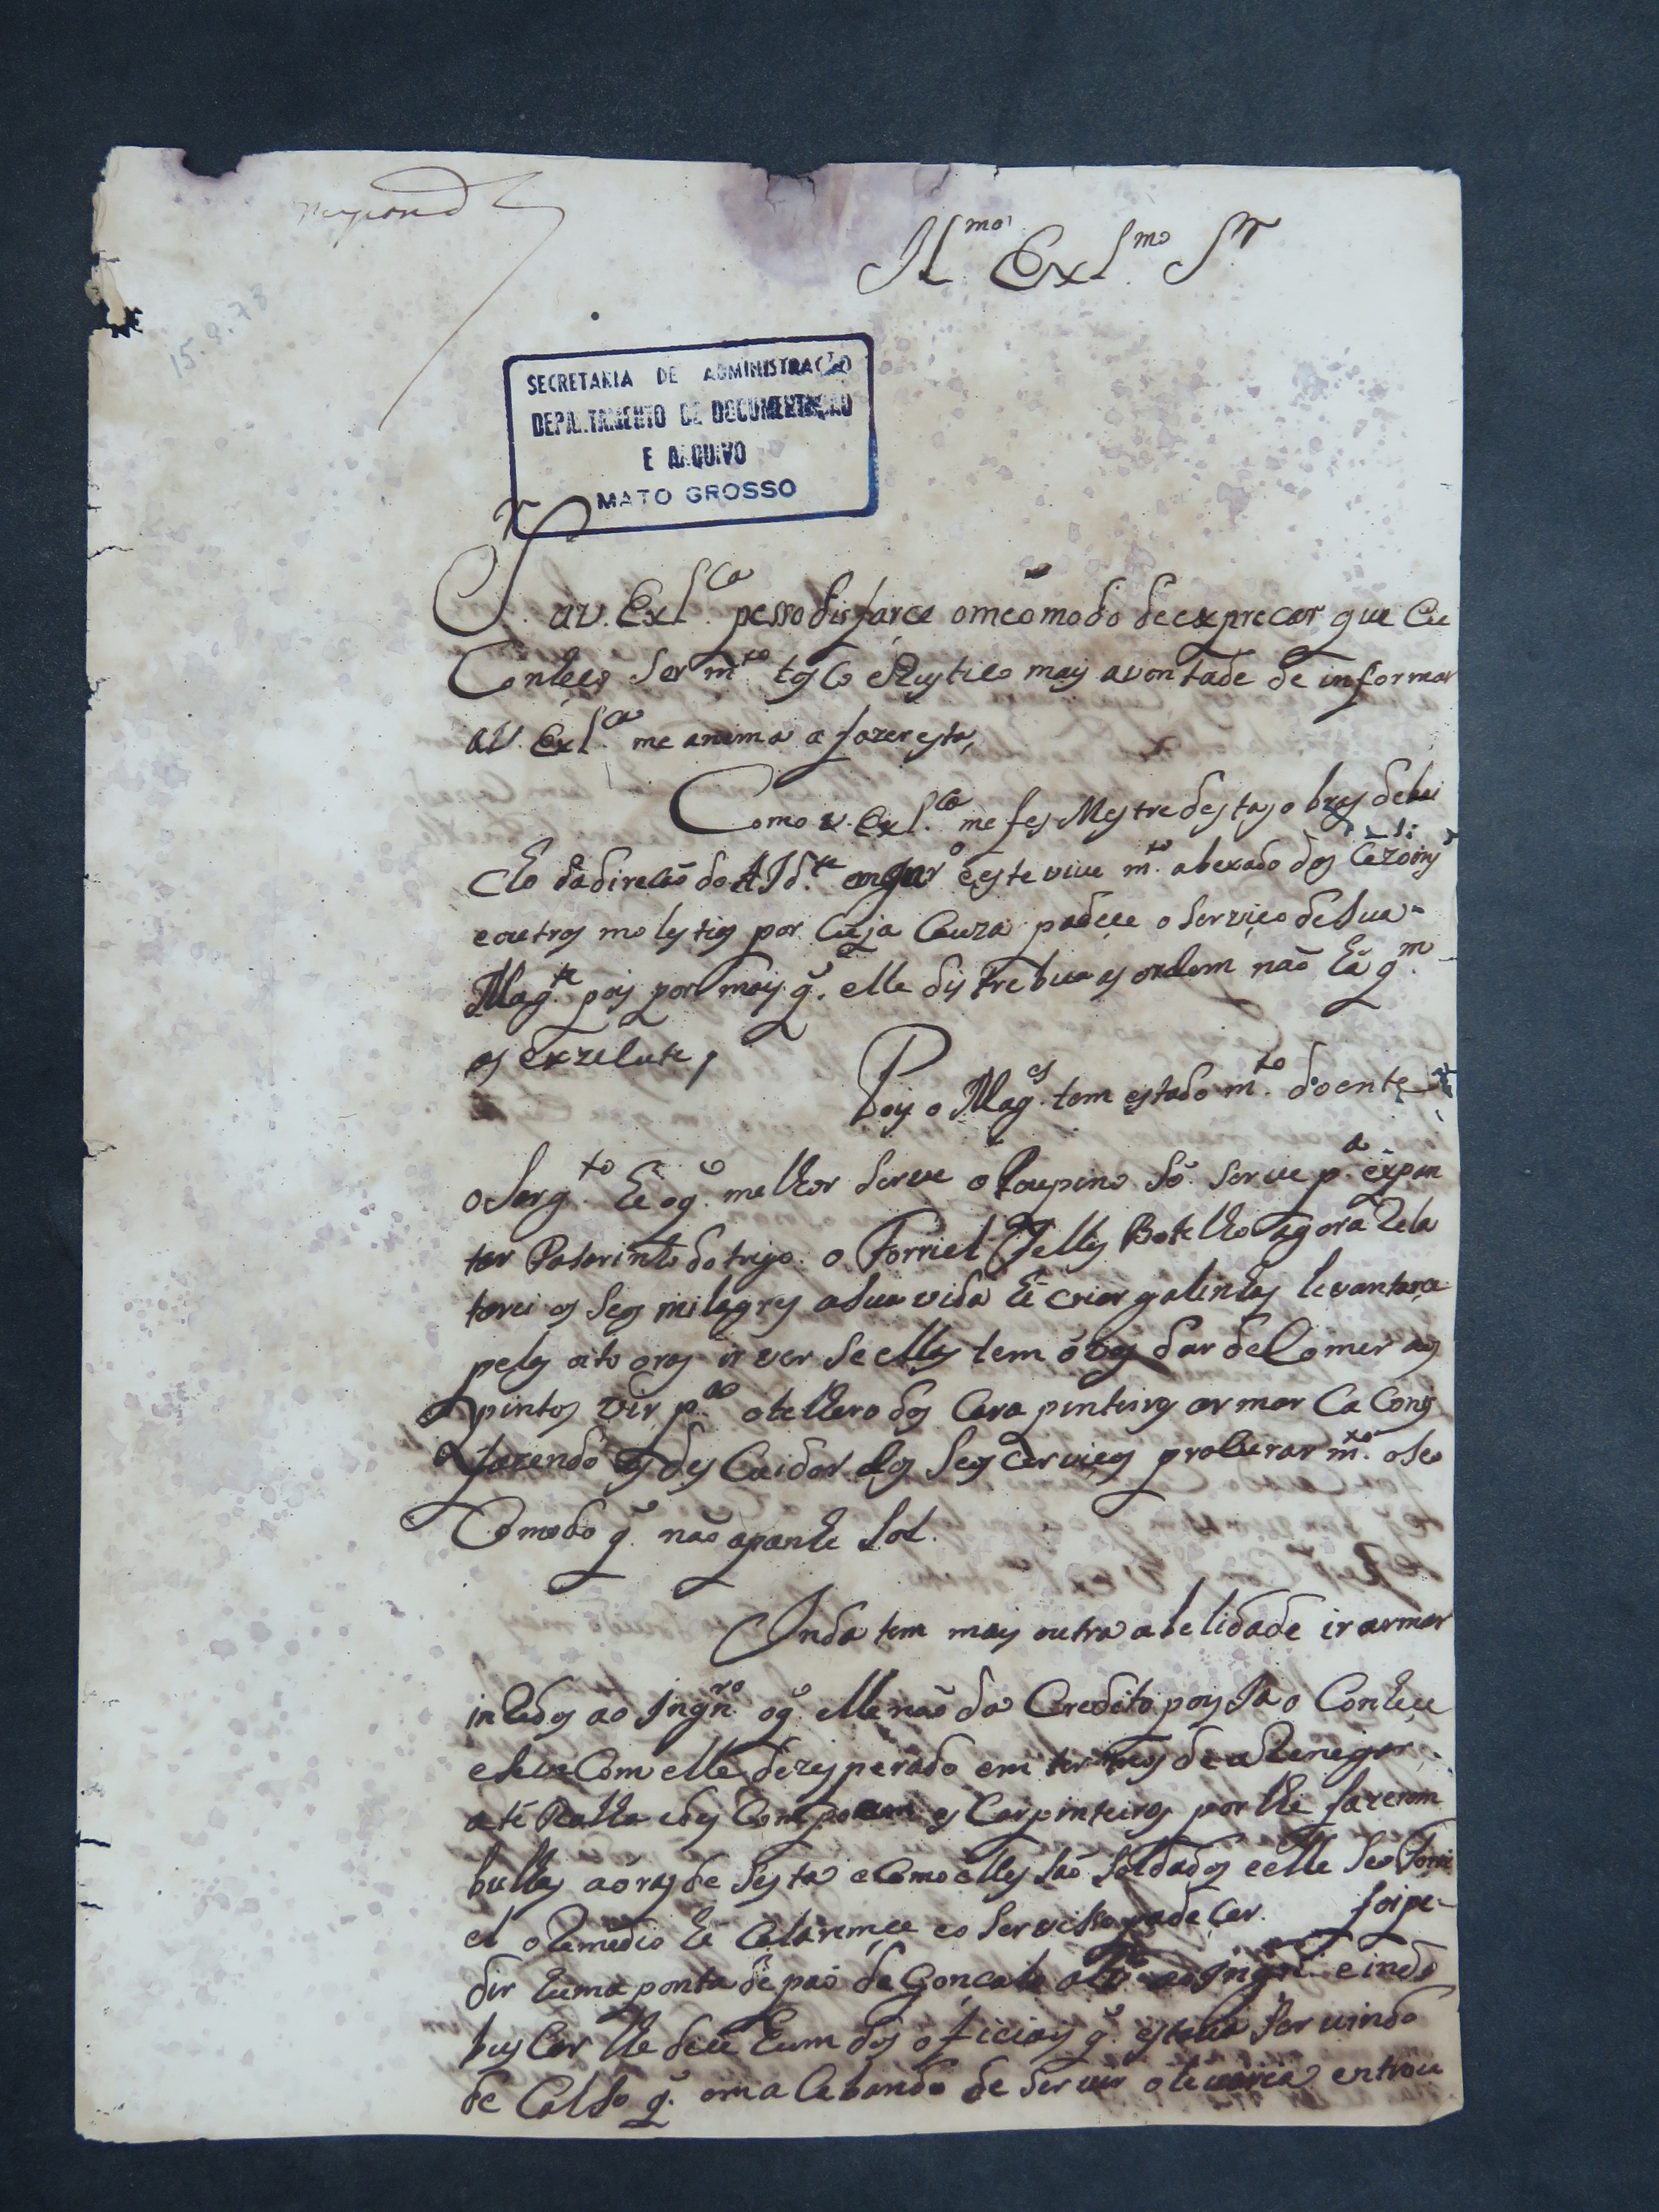 respond.
Il.mo Ex.mo S.r
15.9.78
SECRETARIA DE ADMINISTRAÇÃO
DEPARTAMENTO DE DOCUMENTAÇÃO
E ARQUIVO
MATO GROSSO
S.r
a V. Exl.ca pesso disfarce o meo modo de exprecar que Eu
Conheço Ser m.to tosco e Rustico mais a vontade de informar
a V. Exl.ca me anima a fazer esta,
Como V. Exl.ca me fes Mestre destas obras debai
Cho da direcaõ do AJd.te e este vive m.to abexado dos Cezoins
e outros molestias por Cuja Cauza padece o Serviço de Sua
Mag.te pois por mais q̃. elle distrebua as ordem naõ há q.m
as exzecute,
Pois o Mag.es tem estado m.to doente
o Sarg.to hé o q̃ melhor Serve o Toupino Só Serve p.a expan
tar Pasarinho do trigo. o Forriel Telles Botelho agora Rela
tarei os Seos milagres a Sua vida hé criar galinhas levantarce
pelas oito oras ir ver Se ellas tem óvos dar de Comer aos
pintos vir p.a o telhero dos Carapinteiros armar Ca Cons
fazendo os descuidar dos Seos cerviços procurar m.to o Seo
Comodo q̃. naõ apanhe Sol.
Inda tem mais outra abelidade ir armar
inRedos ao Ingn.ro o q̃ elle naõ da Credito pois Ja o Conhece
e Com elle dezesperado em termos de aRenegar
até os Carpinteiros por lhe fazerem
bulhas a oras de Sesta e Como elles Saõ Soldados e elle Seo Forri
el o Remedio hé Calaremce e o Servisso padeçer. foi pe-
dir huma ponta de pao de Gonçalo ao Ingn.ro e indo
buscar lhe dice hum dos oficiais q̃ estava Servindo
de Calso q̃. em acabando de Servir o levaria entrou